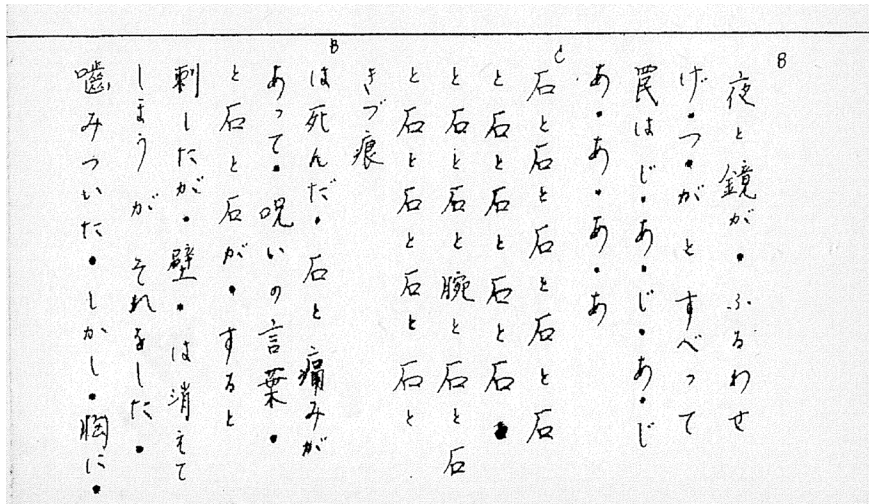 B
夜と鏡が・ふるわせ
げ・つ・がとすべって
罠はじ・あ・じ・あ・じ
あ・あ・あ・あ
C
石と石と石と石と石
と石と石と石と石・
と石と石と腕と石と石
と石と石と石と石と
きづ痕
B
は死んだ・石と痛みが
あって・呪いの言葉・
と石と石が・すると
刺したが・壁・は消えて
しまうが それをした・
嚙みついた・しかし・胸に・